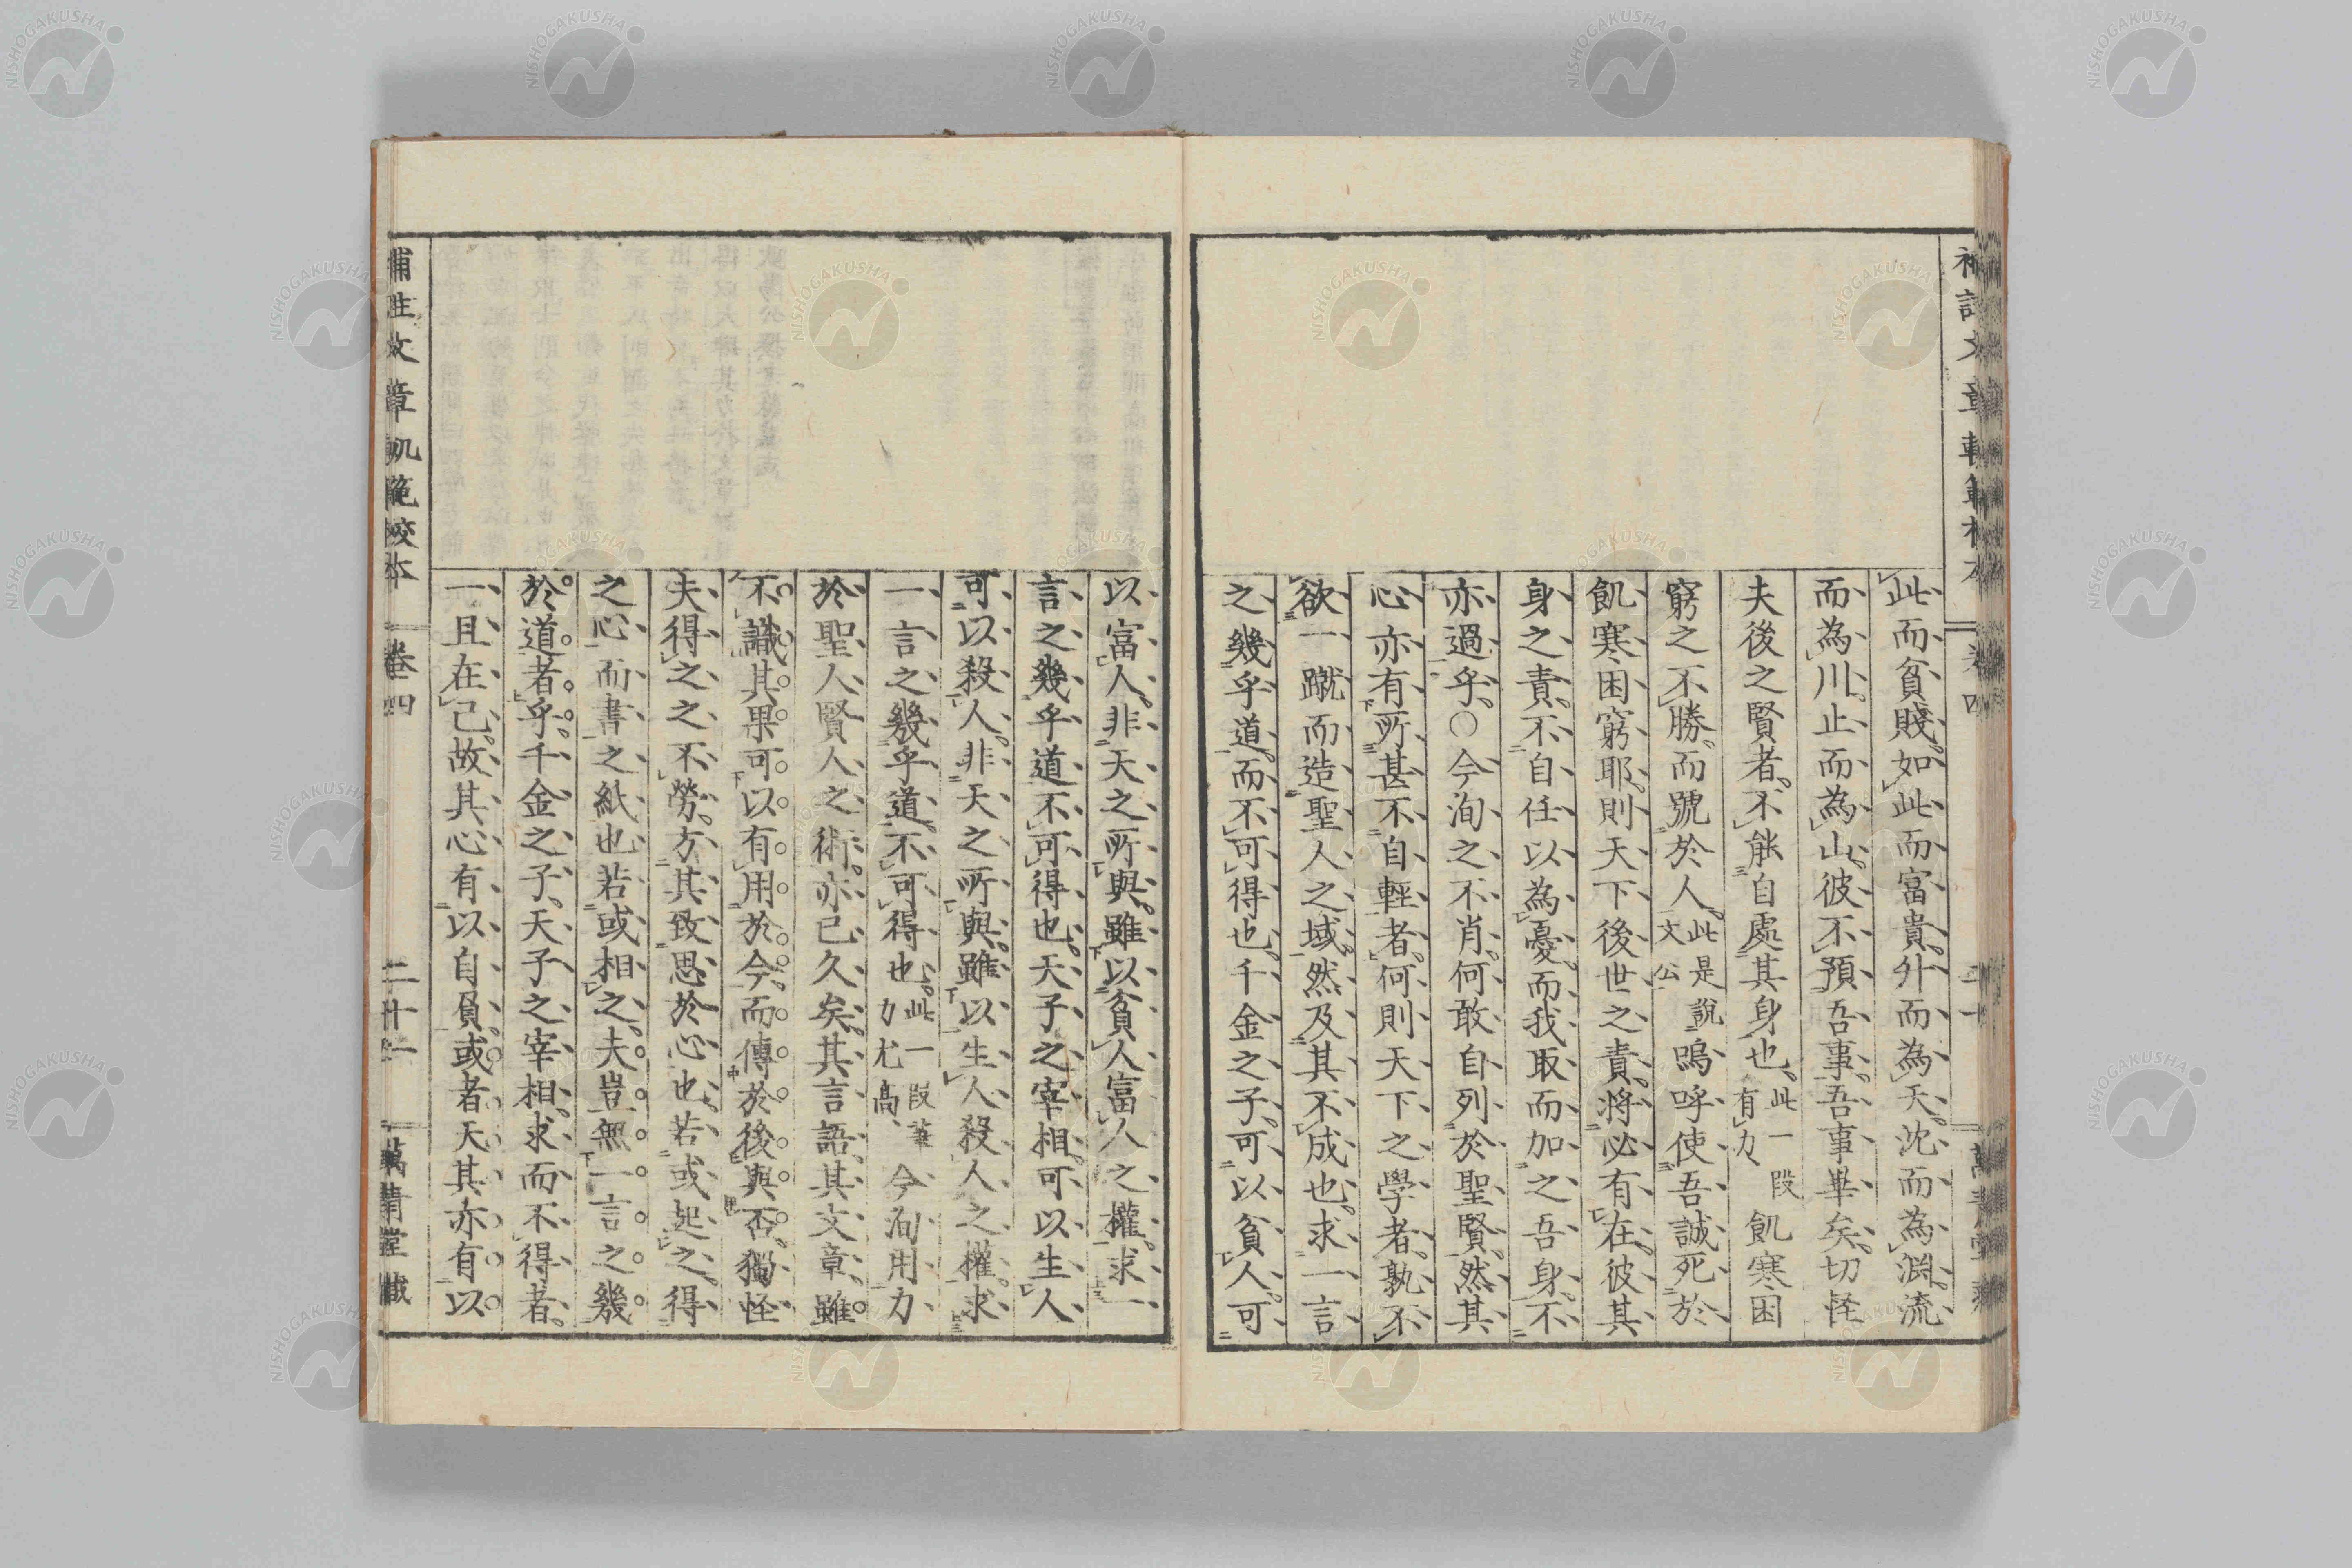 此而貧賤。如此而富貴。外而為天。沈而為淵。流
而為川。止而為山。彼不預吾事。吾事畢矣。切怪
夫後之賢者。不能自處其身也。此一段有力 飢寒困
窮之不勝。而號於人。此是說文公 嗚呼使吾誠死於
飢寒困窮耶。則天下後世之責。將必有在。彼其
身之責。不自任以為憂。而我取而加之吾身。不
亦過乎。○今洵之不肖。何敢自列於聖賢。然其
心亦有所甚不自輕者。何則天下之學者。孰不
欲一蹴而造聖人之域。然及其不成也。求一言
之幾乎道。而不可得也。千金之子。可以貧人。可
以富人。非天之所與。雖以貧人富人之權。求一
言之幾乎道。不可得也。天子之宰相。可以生人
可以殺人。非天之所與。雖以生人殺人之權。求
一言之幾乎道。不可得也。此一段筆力尤高、 今洵用力
於聖人賢人之術。亦已久矣。其言語其文章。雖
不識其果可以有用於今。而傳於後與否。獨怪
夫得之之不勞。方其致思於心也。若或起之。得
之心而書之紙也。若或相之。夫豈無一言之幾
於道者乎。千金之子、天子之宰相。求而不得者。
一旦在己。故其心有以自負。或者天其亦有以
補註文章軌範校本 卷四 二十一 萬青堂藏
NISHOGAKUSHA